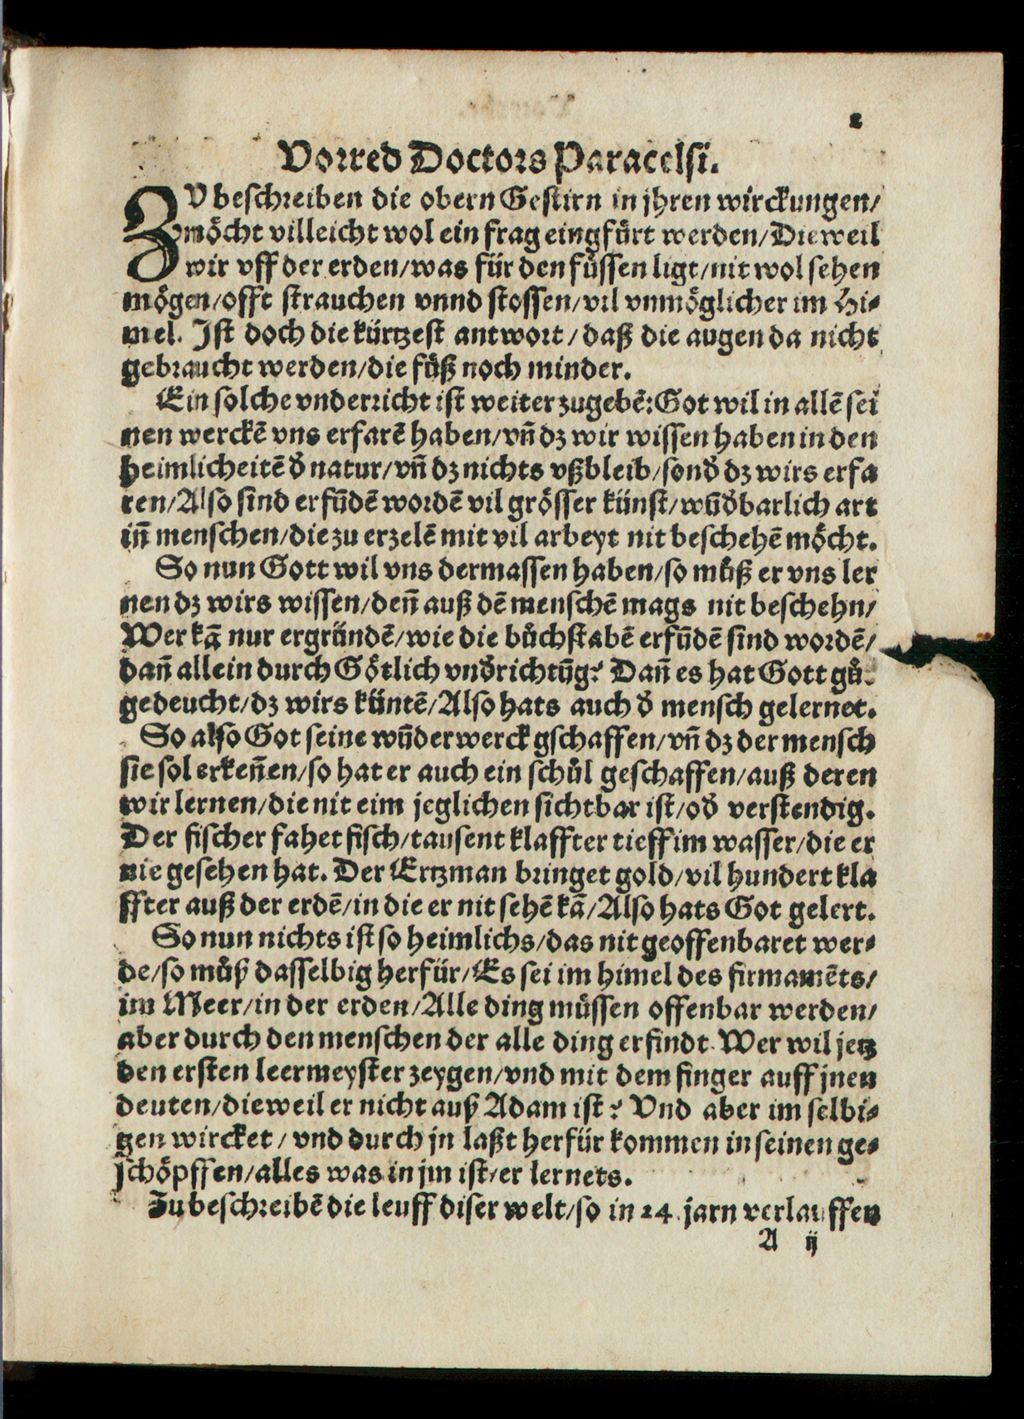 2
Vorred Doctors Paracelsi.
ZV beschreiben die obern Gestirn in jhren wirckungen/
möcht villeicht wol ein frag eingfürt werden/Dieweil
wir vff der erden/was für den füssen ligt/nit wol sehen
mögen/offt strauchen vnnd stossen/vil vnmöglicher im Hi⸗
mel. Ist doch die kürtzest antwort/daß die augen da nicht
gebraucht werden/die füß noch minder.
Ein solche vnderricht ist weiter zugebē:Got wil in allē sei
nen werckē vns erfarē haben/vn̄ dz wir wissen haben in den
heimlicheitē d̓ natur/vn̄ dz nichts vßbleib/sond̓ dz wirs erfa
ren/Also sind erfūdē wordē vil grösser künst/wūd̓barlich art
in̄ menschen/die zu erzelē mit vil arbeyt nit beschehē möcht.
So nun Gott wil vns dermassen haben/so můß er vns ler
nen dz wirs wissen/den̄ auß dē menschē mags nit beschehn/
Wer kā nur ergründē/wie die bůchstabē erfūdē sind wordē/
dan̄ allein durch Götlich vnd̓richtūg? Dan̄ es hat Gott gů⸗
gedeucht/dz wirs küntē/Also hats auch d̓ mensch gelernet.
So also Got seine wūderwerck gschaffen/vn̄ dz der mensch
sie sol erken̄en/so hat er auch ein schůl geschaffen/auß deren
wir lernen/die nit eim jeglichen sichtbar ist/od̓ verstendig.
Der fischer fahet fisch/tausent klaffter tieff im wasser/die er
nie gesehen hat. Der Ertzman bringet gold/vil hundert kla
ffter auß der erdē/in die er nit sehē kā/Also hats Got gelert.
So nun nichts ist so heimlichs/das nit geoffenbaret wer⸗
de/so můß dasselbig herfür/Es sei im himel des firmamēts/
im Meer/in der erden/Alle ding müssen offenbar werden/
aber durch den menschen der alle ding erfindt. Wer wil jetz
den ersten leermeyster zeygen/vnd mit dem finger auff jnen
deuten/dieweil er nicht auß Adam ist? Vnd aber im selbi⸗
gen wircket/vnd durch jn laßt herfür kommen in seinen ge⸗
schöpffen/alles was in jm ist/er lernets.
Zu beschreibē die leuff diser welt/so in 24. jarn verlauffen
A ij